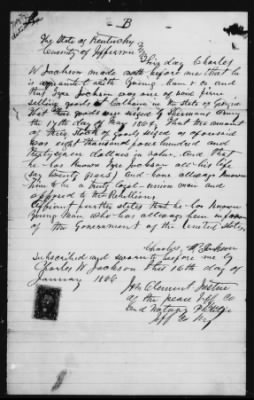 B
The State of Kentucky
County of Jefferson
This day Charles
W Jackson made oath before me that he
is acquainted with Young Man & Co and
that Isza Jackson was one of said firm
selling goods at Calhoun in the State of Georgia
that their goods were seized by Shermans Army
the 17th day of May 1864. That the amount
of their stock of Goods seized as aforesaid
was eight thousand four hundred and
thirty seven dollars in value, and that
he has known Jackson all his life
(say twenty years) and has allways known
him to be a truly loyal union man and
opposed to the Rebellion.
Affiant further states that he has known
Young Man who has allways been in favor
of the Government of the United States.
Charles W Jackson
Subscribed and sworn to before me by
Charles W Jackson this 16th day of
January 1866
Jno Clement Justice
of the peace Jeff Co
and Notary Public
Jeff Co Ky